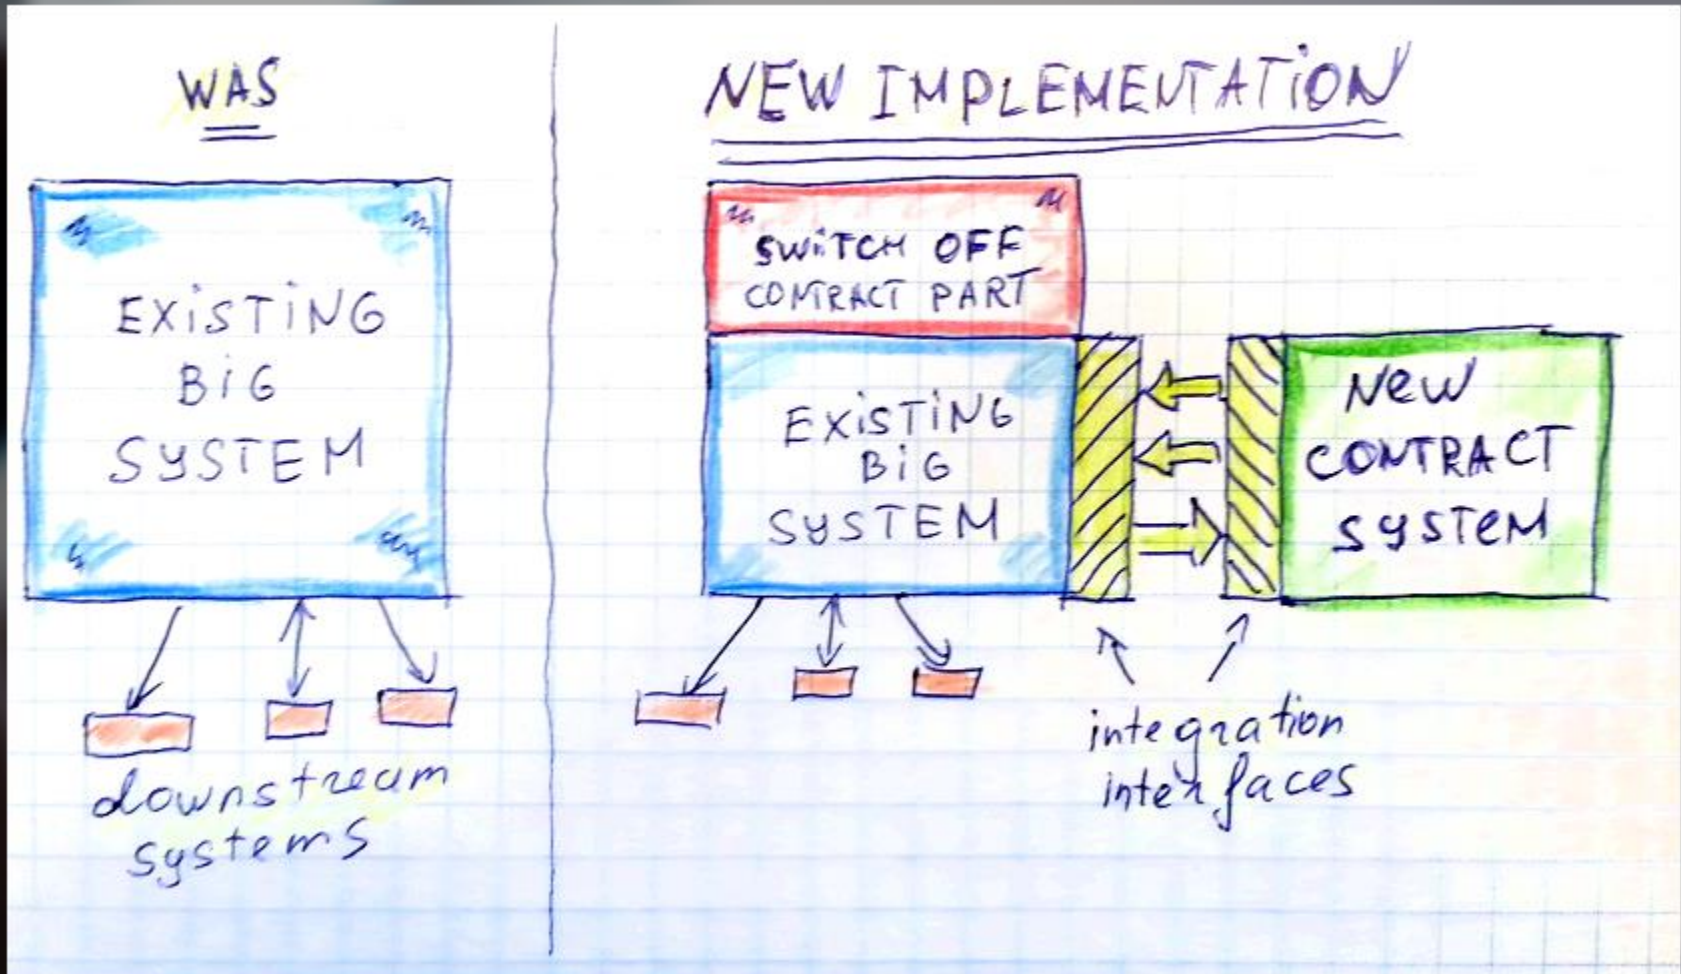 WAS
EXiSTiNG
BiG
SYSTEM
downstream
systems
NEW IMPLEMENTATiON
SWiTCH OFF
CONTRACT PART
EXiSTiNG
BiG
SYSTEM
New
CONTRACT
SYSTeM
integration
interfaces